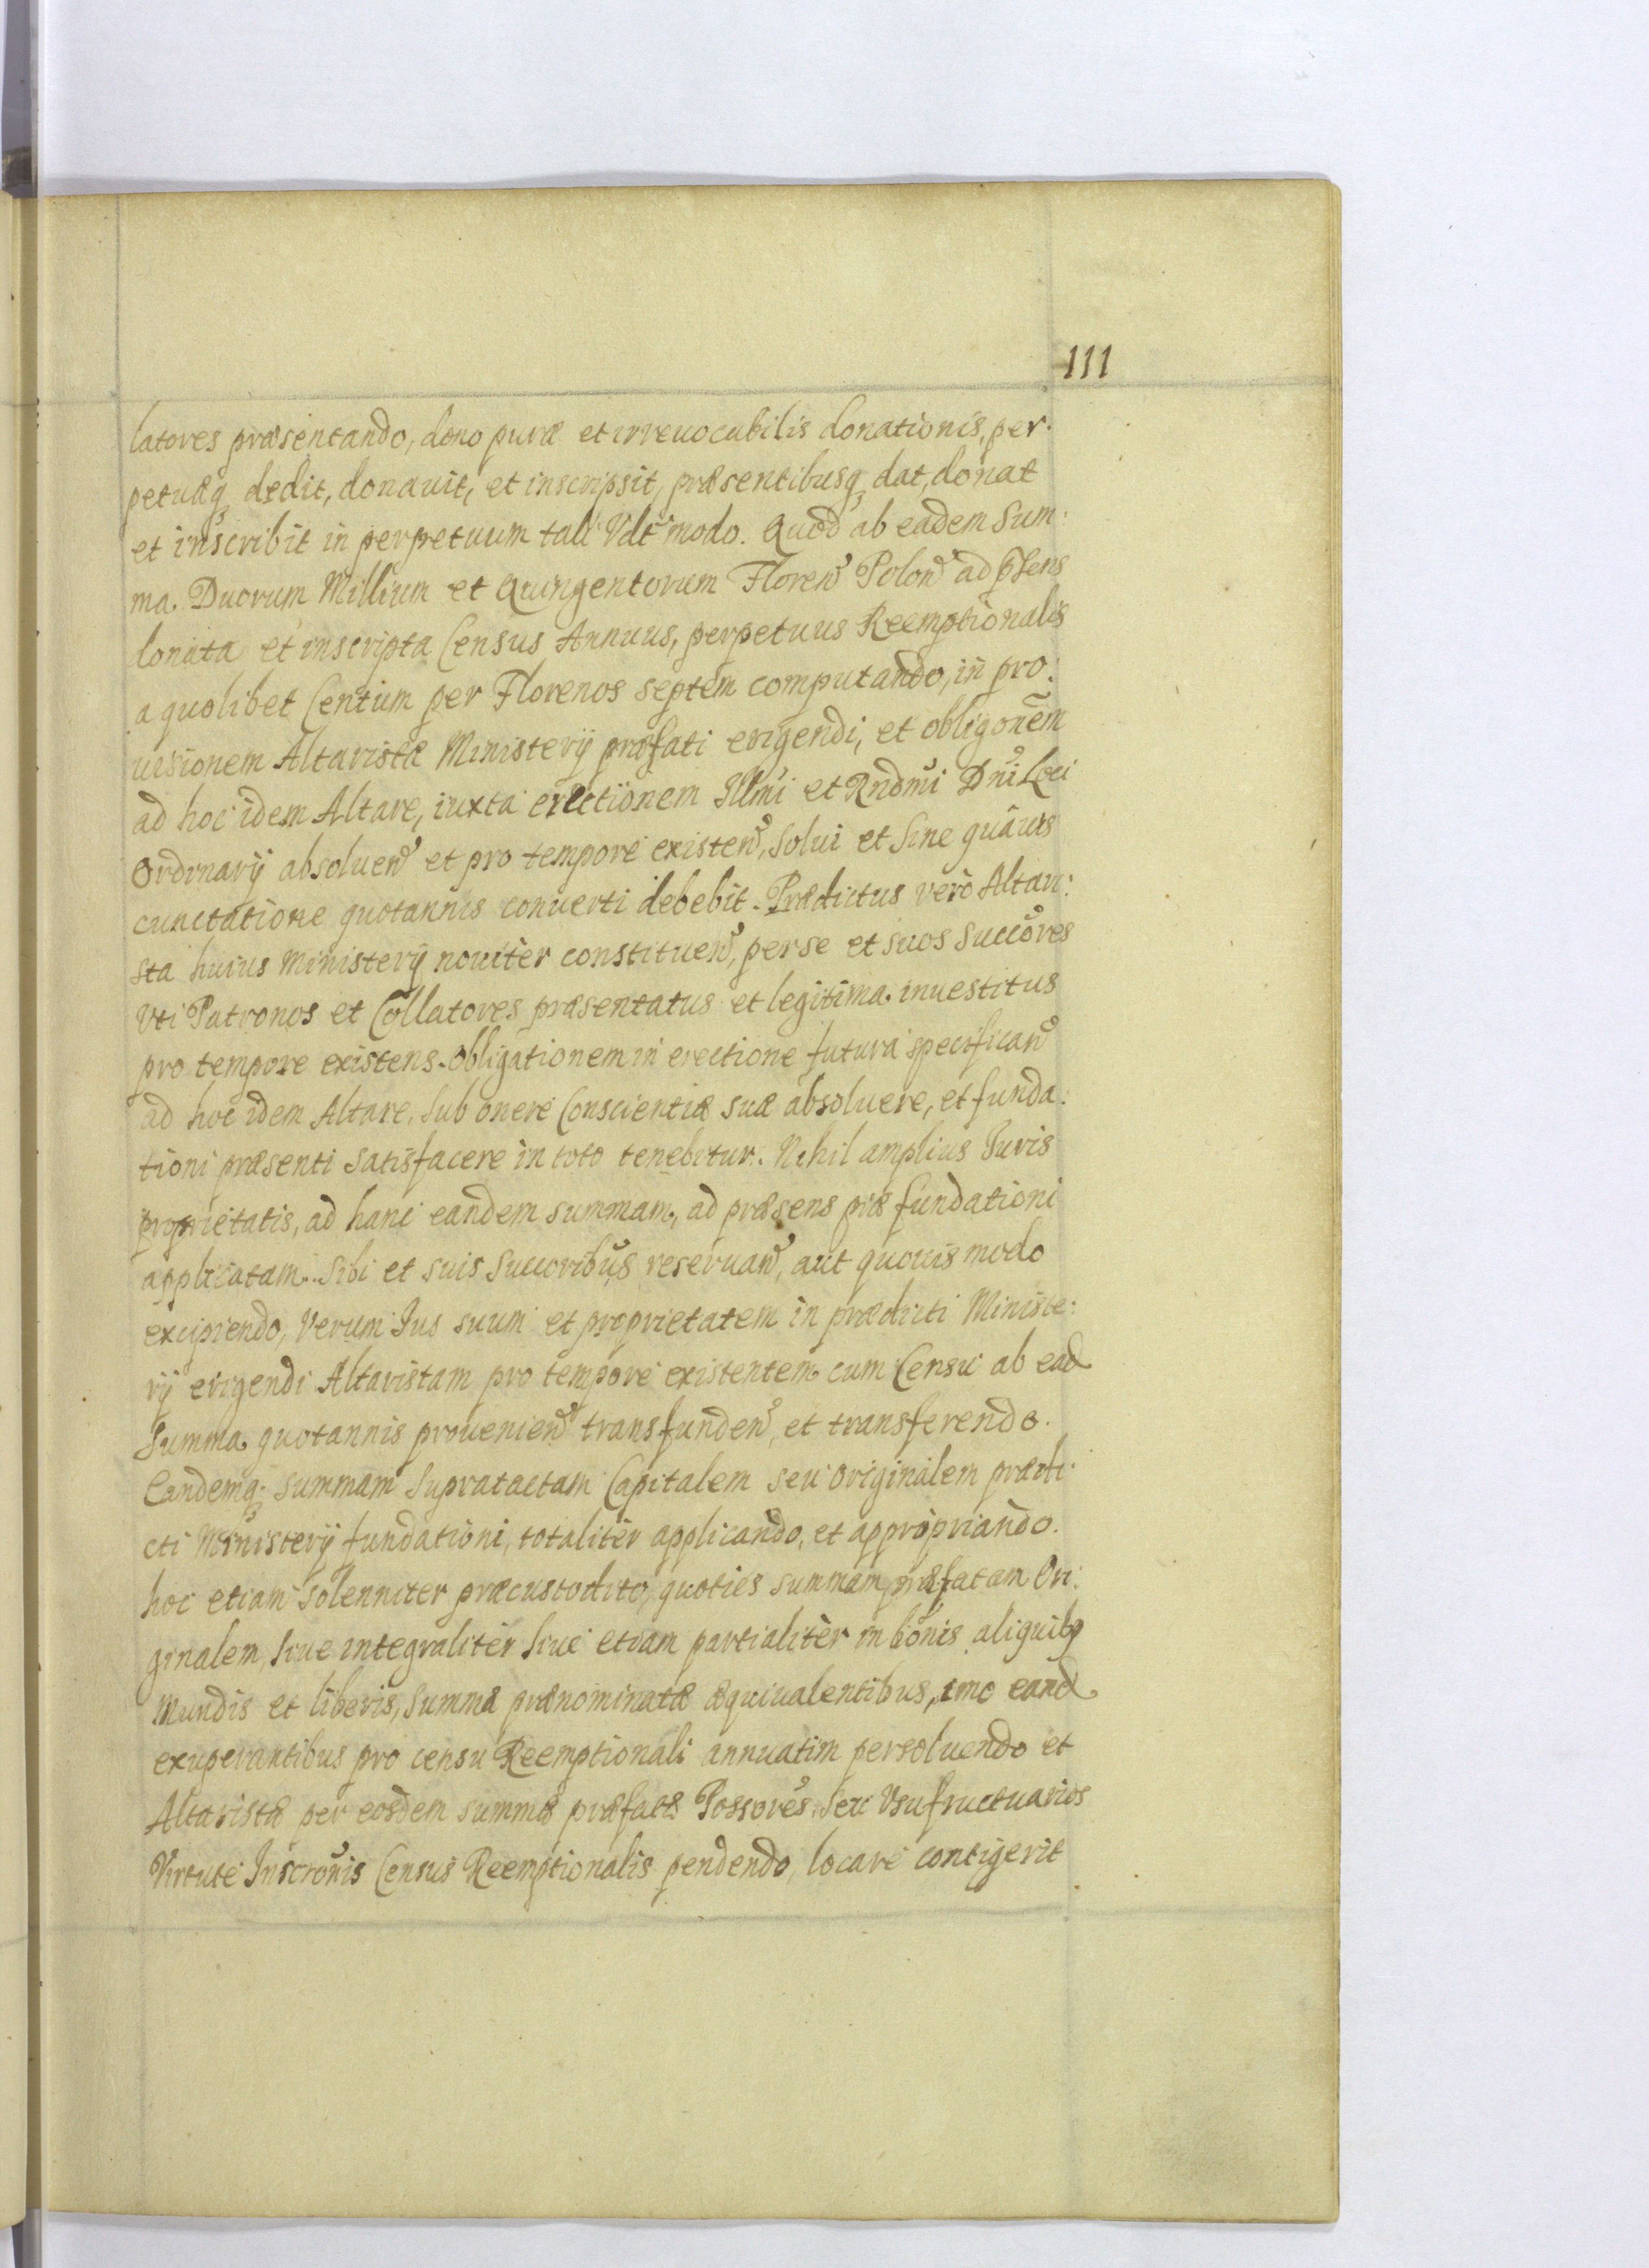 111
latores præsentando, dono puræ et irreuocabilis donationis, per-
petuæq́ dedit, donauit, et inscripsit, præsentibusq́ dat, donat
et inscribit in perpetuum tali Vdt modo. Quod ab eadem Sum:
ma. Duorum Millium et Quingentorum Floren̄ Polon̄ ad p̄sens
donata et inscripta Census Annuus, perpetuus Reemptionalis
a quolibet Centum per Florenos septem computando, in pro:
uisionem Altaristæ Ministerij præfati erigendi, et obligoñem
ad hoc idem Altare, iuxta erectionem Illm̃i et Rndm̃i Dñi Loci
Ordinarij absoluen̄ et pro tempore existen̄, Solui et Sine quâuis
cunctatione quotannis conuerti debebit. Prædictus verò Altari:
sta huius Ministerij nouitèr constituen̄, per se et suos Succõres
Vti Patronos et Collatores præsentatus et legitima inuestitus
pro tempore existens. Obligationem in erectione futura specifican̄
ad hoc idem Altare, Sub onere Conscientiæ suæ absoluere, et funda:
tioni præsenti satisfacere in toto tenebitur. Nihil amplius Iuris
proprietatis, ad hanc eandem summam, ad præsens præ fundationi
applicatam. Sibi et suis Succoribus reseruan̄, aut quouis modo
excipiendo, Verum Ius suum et proprietatem in prædicti Ministe:
rij erigendi Altaristam pro tempore existentem cum Censu ab ead
Summa quotannis prouenien̄ transfunden̄, et transferendo.
Eandemq́ summam Supratactam Capitalem seu originalem prædi:
cti Ministerij fundationi, totalitèr applicando, et appropriando.
hoc etiam solenniter præcustodito, quoties summam præfatam Ori:
ginalem, siue integralitèr siue etiam partialitèr in bonis aliquibq
mundis et liberis, Summæ prænominatæ æquiualentibus, imo eand
exuperantibus pro censu Reemptionali annuatim persoluendo et
Altaristæ per eosdem summæ præfatæ Possores, seu Vsufructuarios
Virtute Inscrõnis Census Reemptionalis pendendo, locare contigerit